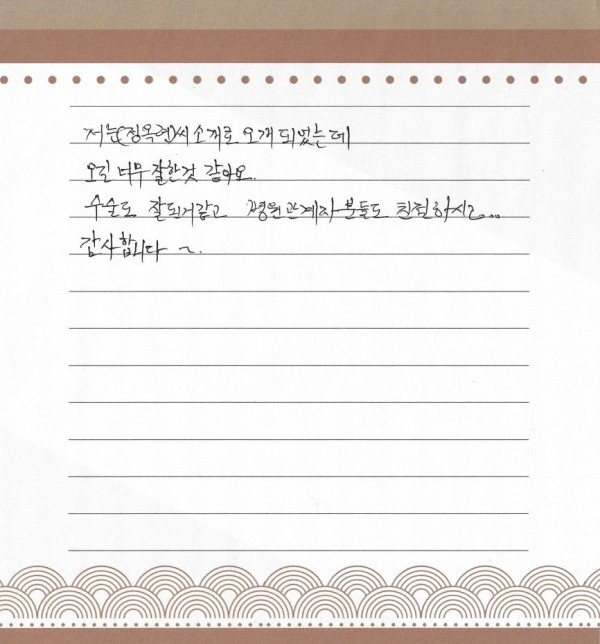 저는(정옥련)씨 소개로 오게 되었는데
오길 너무 잘한것 같아요.
수술도 잘된거같고 병원관계자분들도 친절하시고...
감사합니다 ~.